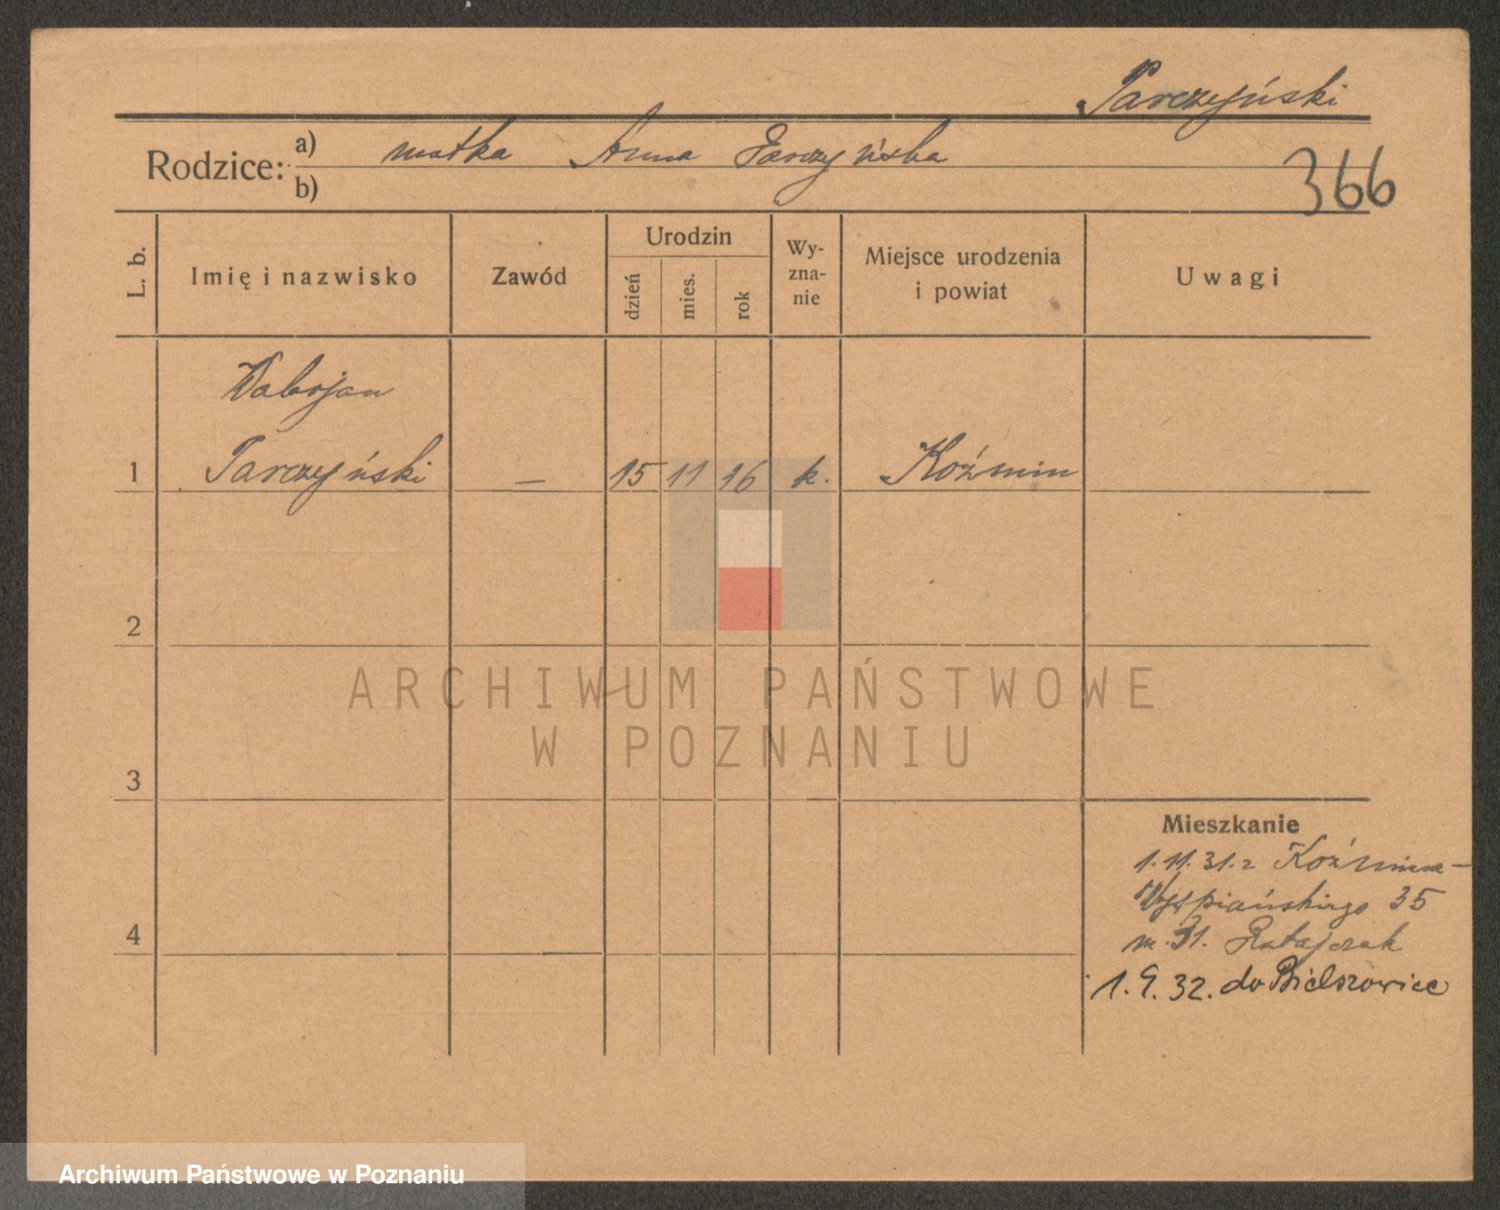 Parczyński
Rodzice: a) matka Anna Parczyńska
366
b)
L. b.
Imię i nazwisko
Zawód
Urodzin
dzień
mies.
rok
Wy-
zna-
nie
Miejsce urodzenia
i powiat
Uwagi
Walerjan
1 Parczyński — 15 11 16 k. Koźmin
2
ARCHIWUM PAŃSTWOWE
W POZNANIU
3
Mieszkanie
1.11.31. z Koźmina –
Wyspiańskiego 35
4
m. 31. Ratajczak
1.9.32. do Bielszowice
Archiwum Państwowe w Poznaniu